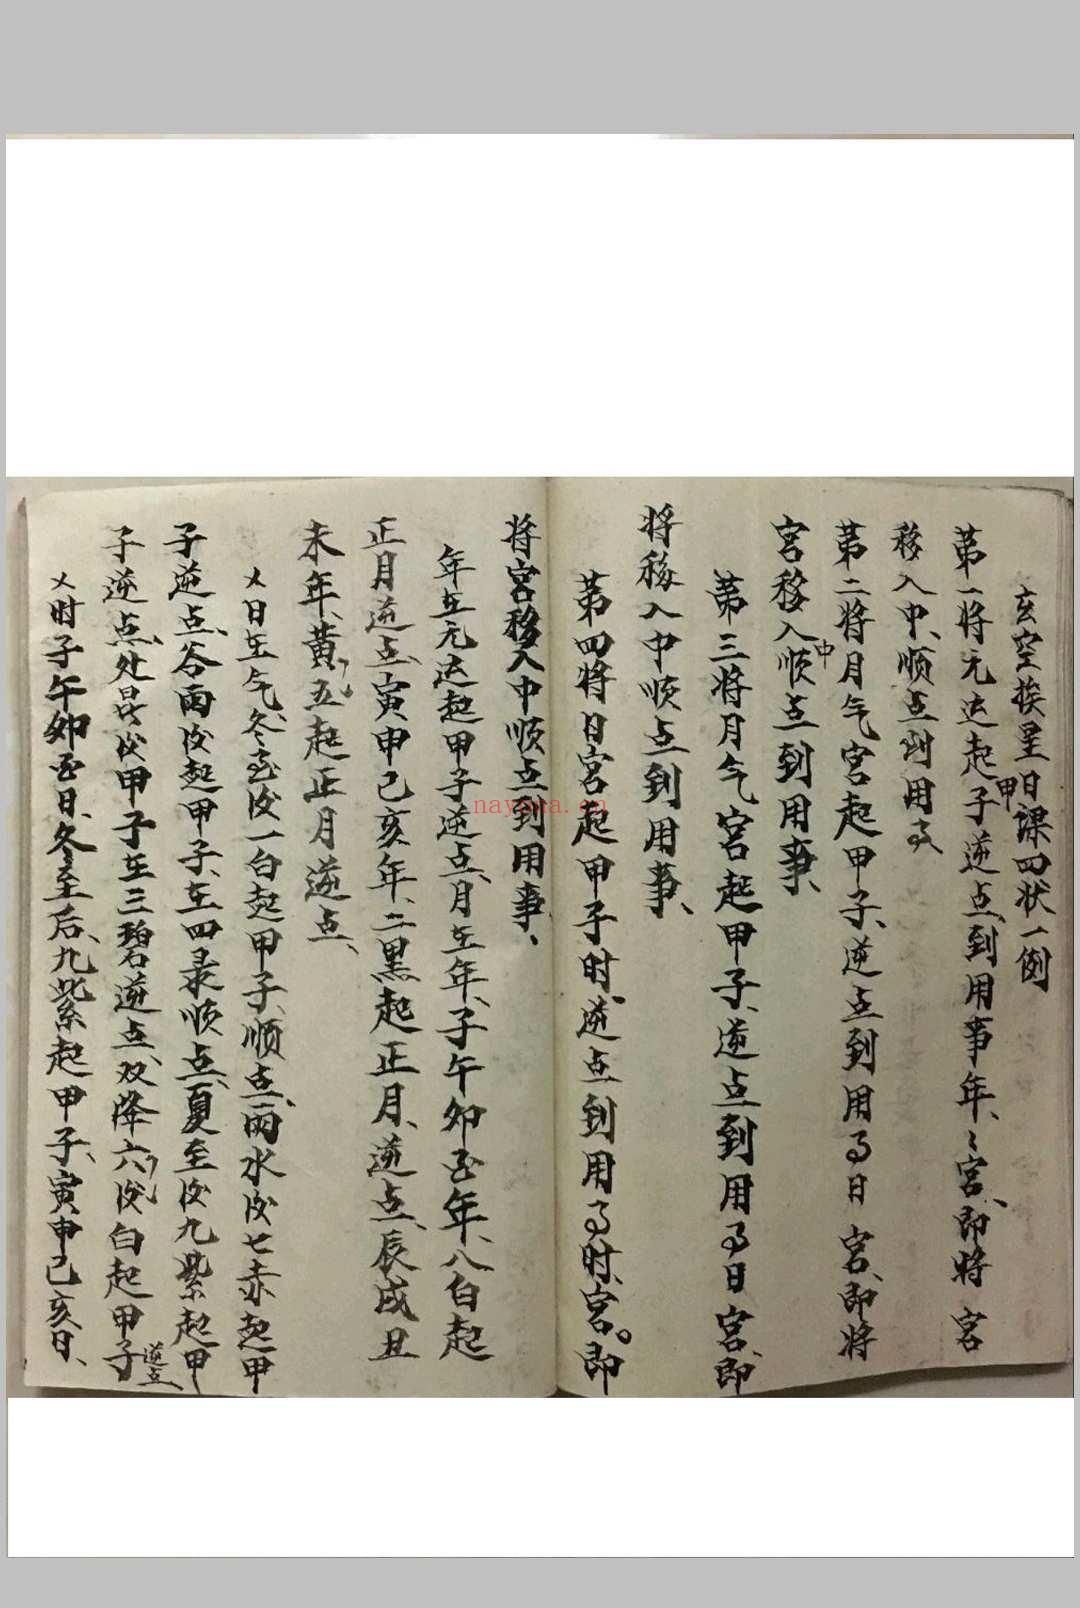 玄空挨星日课四状一例
第一将元运起甲子逆点、到用事年、〻宫、即将宫
移入中、顺点到用事
第二将月气宫起甲子、逆点到用事日宫、即将
宫移入中顺点到用事、
第三将月气宫起甲子、逆点到用事日宫、即
将移入中顺点到用事、
第四将日宫起甲子时、逆点到用事时、宫。即
将宫移入中顺点到用事、
年在元运起甲子逆点、月在年、子午卯酉年、八白起
正月逆点、寅申己亥年、二黑起正月、逆点、辰戌丑
未年、五黄起正月逆点、
乂日在气、冬至后一白起甲子、顺点、雨水后七赤起甲
子逆点、谷雨后起甲子、在四录顺点、夏至后九紫起甲
子逆点、处暑后甲子在三碧逆点、双降后六白起甲子逆点、
乂时子午卯酉日、冬至后、九紫起甲子、寅申己亥日、
nayona.cn